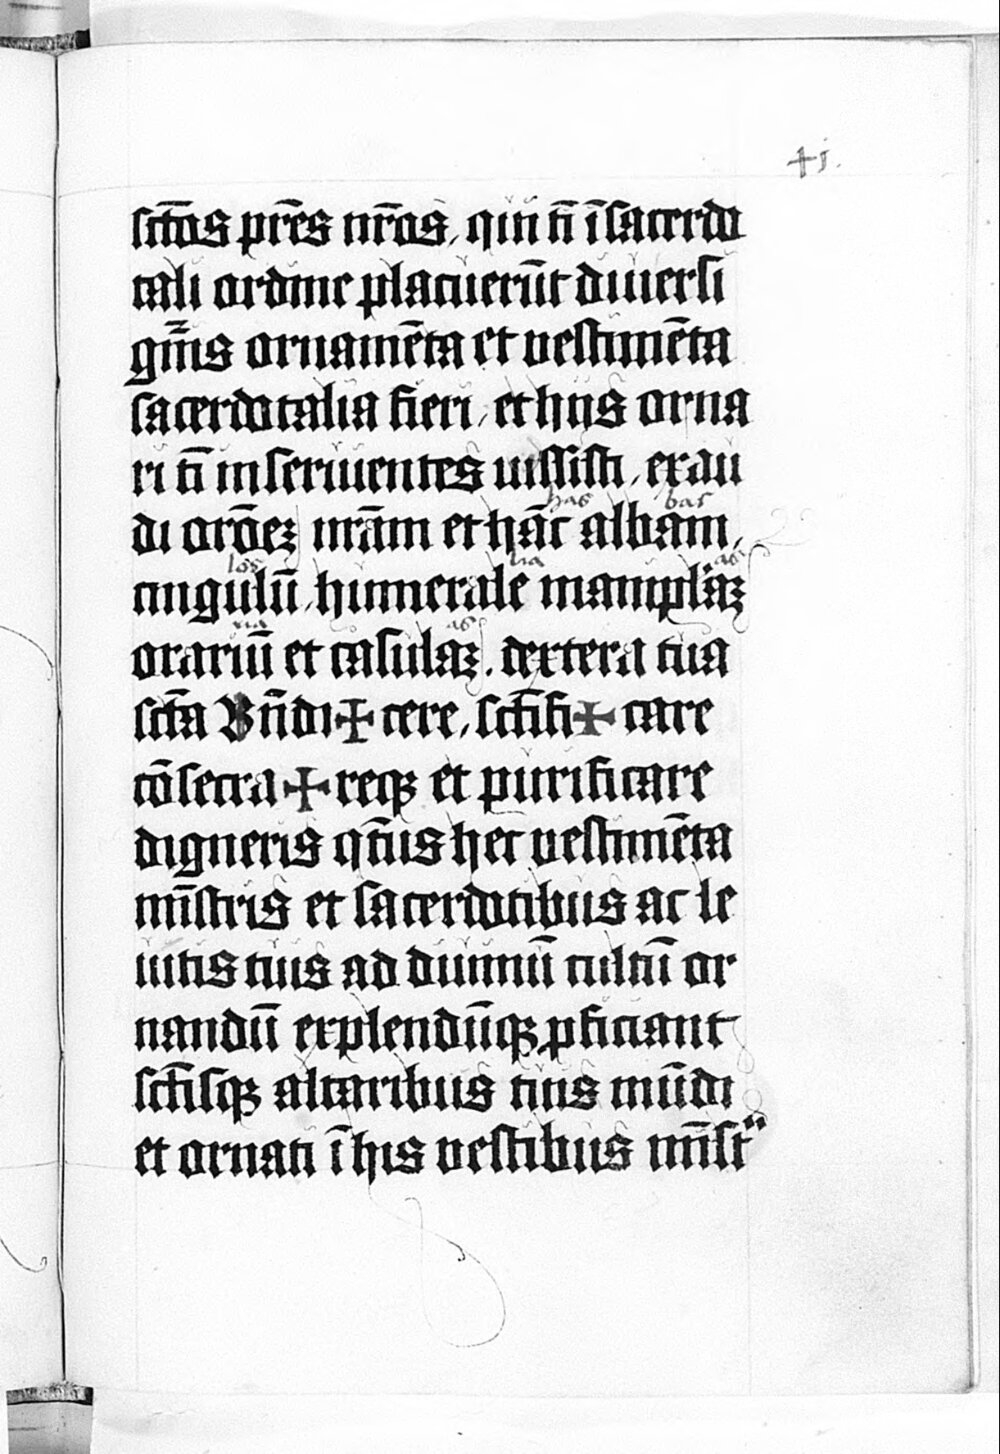 41.
sctōs pr̄es nr̄os, qui ti ī sacerdo
tali ordine placuerūt diuersi
gn̄is ornamēta et vestimēta
sacerdotalia fieri, et hijs orna
ri ti inseruientes iussisti, exau
di orōeꝫ nrām et hāc albam,
has bas
cingulū, humerale manipl'aꝫ
los lia as
orariū et casulaꝫ. dextera tua
ria as
sctā Bn̄di✠cere, sctīfi✠care
cōsecra✠reqꝫ et purificare
digneris qtīus hec vestimēta
mīstris et sacerdotibus ac le
uitis tuis ad diuinū cultū or
nandū explendūqꝫ ꝓficiant
sctīsqꝫ altaribus tuis mūdi
et ornati ī his vestibus mīst